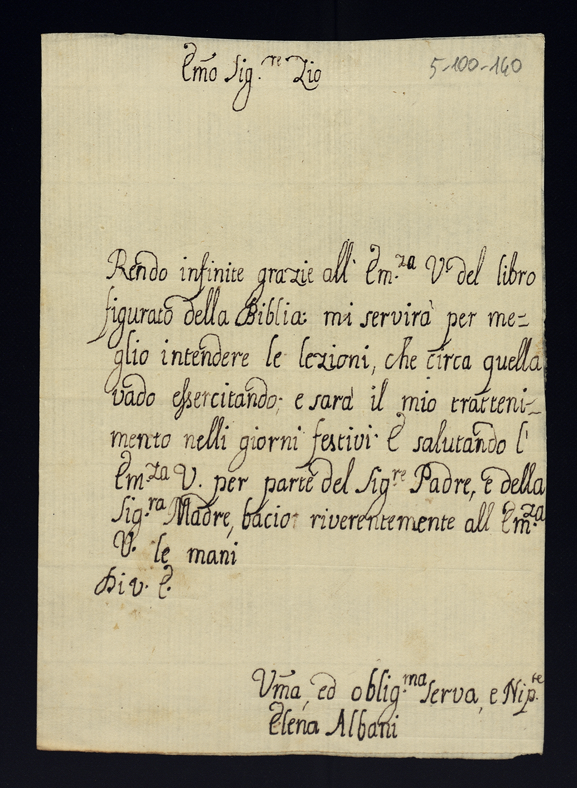 Em̃o Sig.re Zio
5-100-140
Rendo infinite grazie all' Em.za V. del libro
figurato della Biblia: mi servirà per me=
glio intendere le lezioni, che circa quella
vado essercitando; e sarà il mio tratteni=
mento nelli giorni festivi. E salutando l'
Em.za V. per parte del Sig.re Padre, e della
Sig.ra Madre, bacio riverentemente all Em.za
V. le mani
Di V. E.
Um̃a, ed oblig.ma serva, e Nip.te
Elena Albani